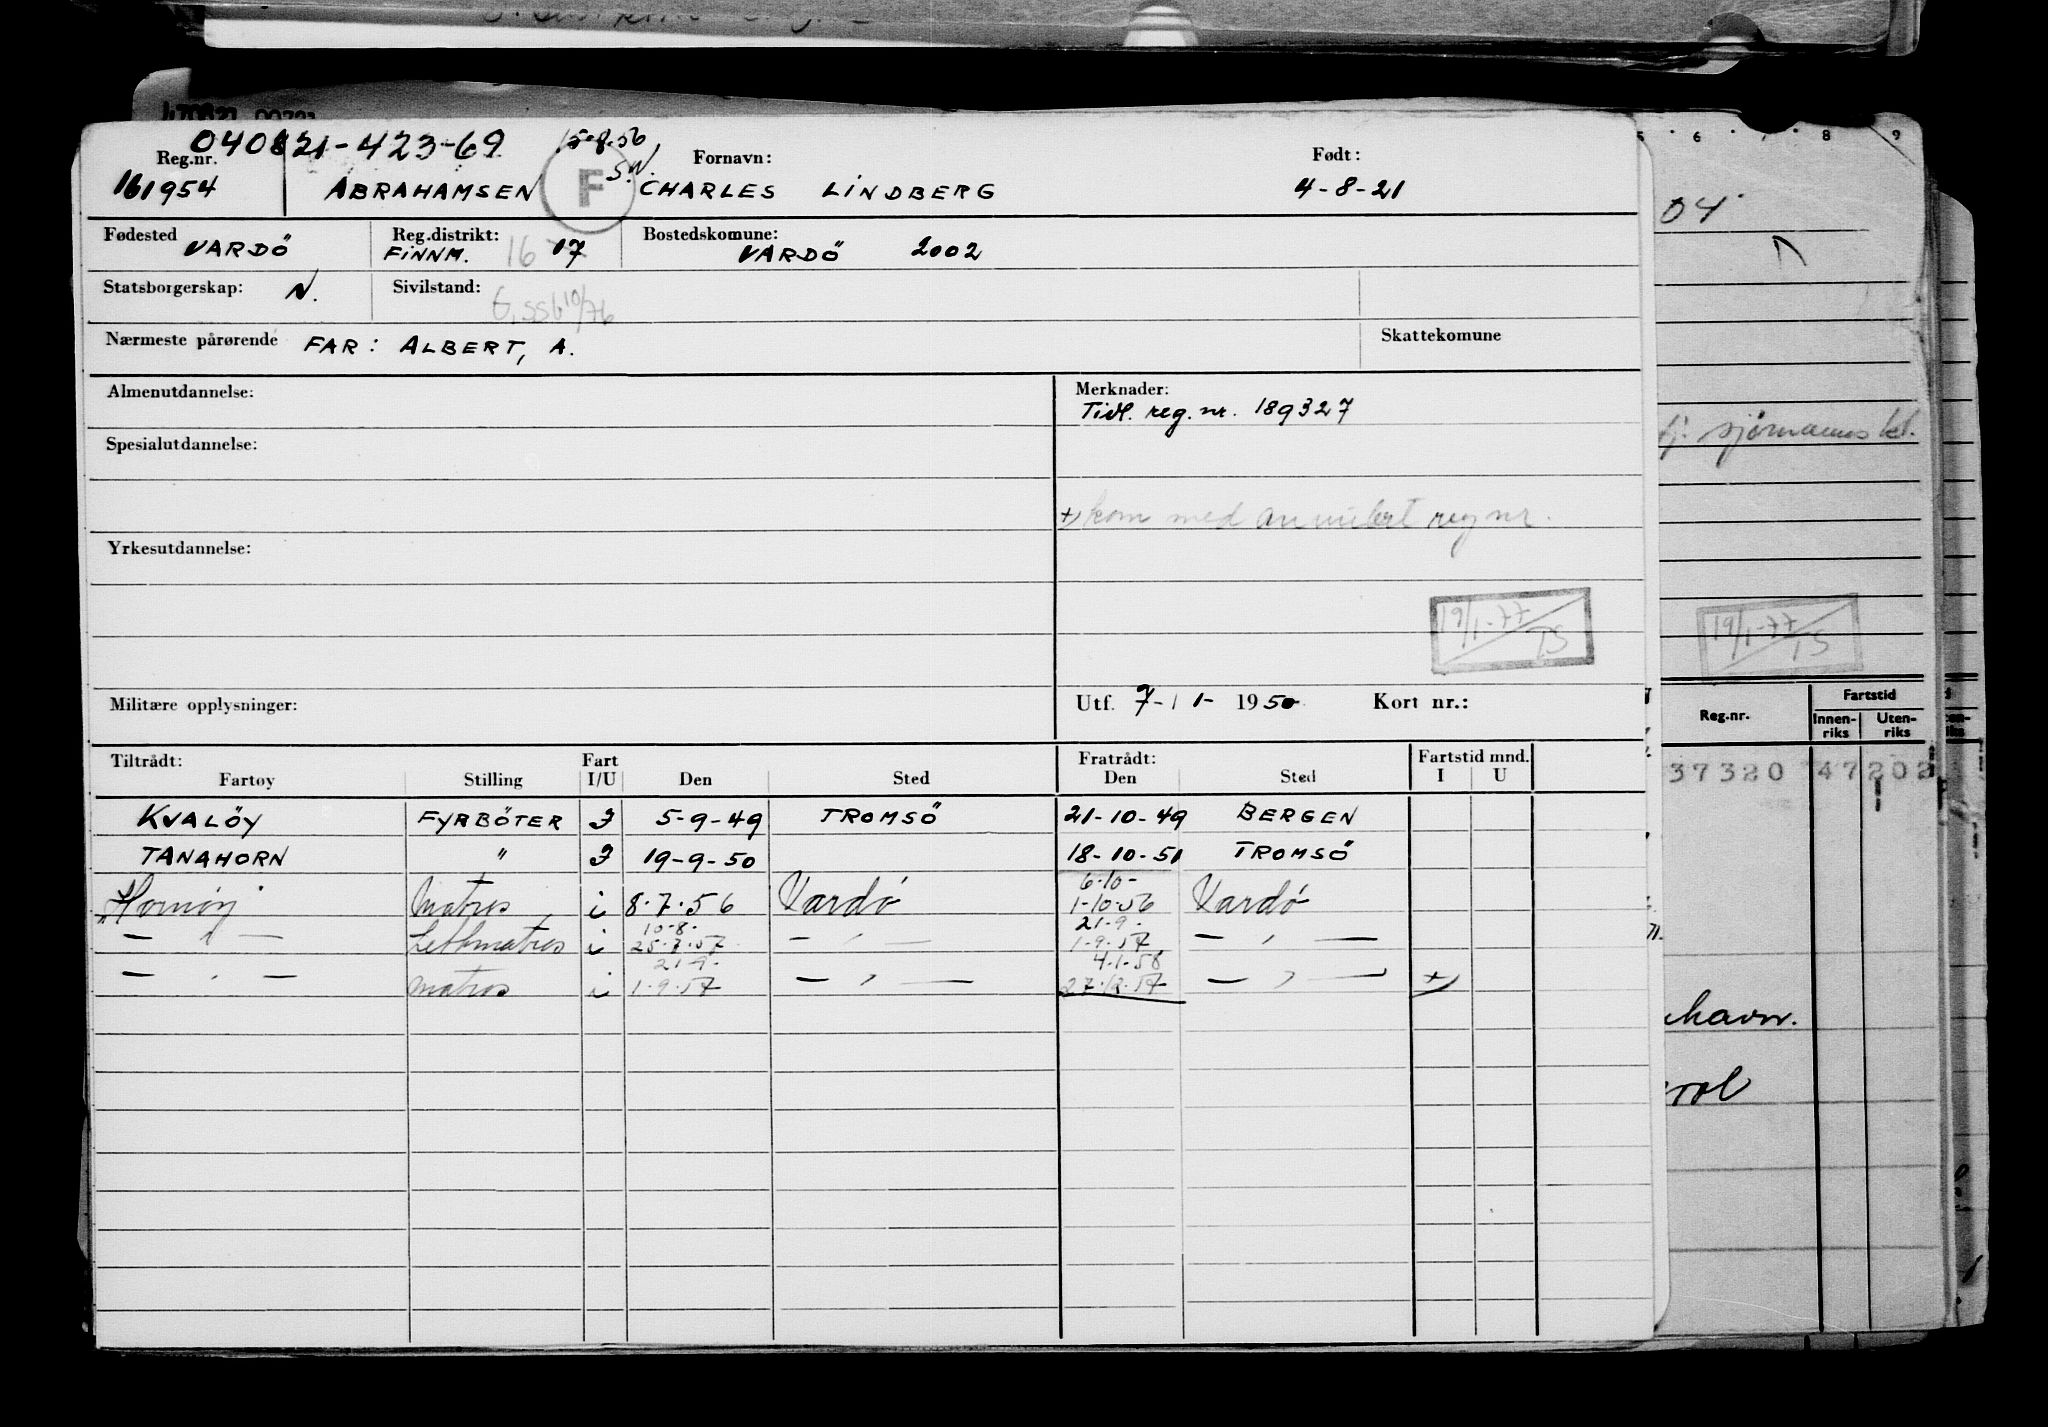 040821-423-69 15-8.56
S.W.
Reg.nr. Fornavn: Født:
161954 ABRAHAMSEN F CHARLES LINDBERG 4-8-21
Fødested Reg.distrikt: Bostedskomune:
VARDÖ FINNM. 16 07 VARDÖ 2002
Statsborgerskap: N. Sivilstand:
10/76
Nærmeste pårørende FAR: ALBERT, A. Skattekomune
Almenutdannelse: Merknader:
Tidl. reg. nr. 189327
Spesialutdannelse:
+) kom med annullert reg nr.
Yrkesutdannelse:
19/1-77
TS
Militære opplysninger: Utf. 7-11-1950 Kort nr.:
Tiltrådt: Fart Fratrådt: Fartstid mnd.
Fartøy Stilling I/U Den Sted Den Sted I U
KVALÖY FYRBÖTER I 5-9-49 TROMSÖ 21-10-49 BERGEN
TANAHORN " I 19-9-50 18-10-51 TROMSÖ
6-10-
Hornøy Matros i 8.7.56 Vardø 1-10-56 Vardø
10-8- 21-9-
— " — Lettmatros i 25.7.57 — " — 1-9.57 — " —
21-9- 4-1-58
— " — matros i 1.9.57 — " — 27.12.57 — " — +)
5 6 7 8 9
04
sjømannskl.
19/1-77
TS
Reg.nr. Fartstid
Innen- Uten-
riks riks
37320 47202
havn.